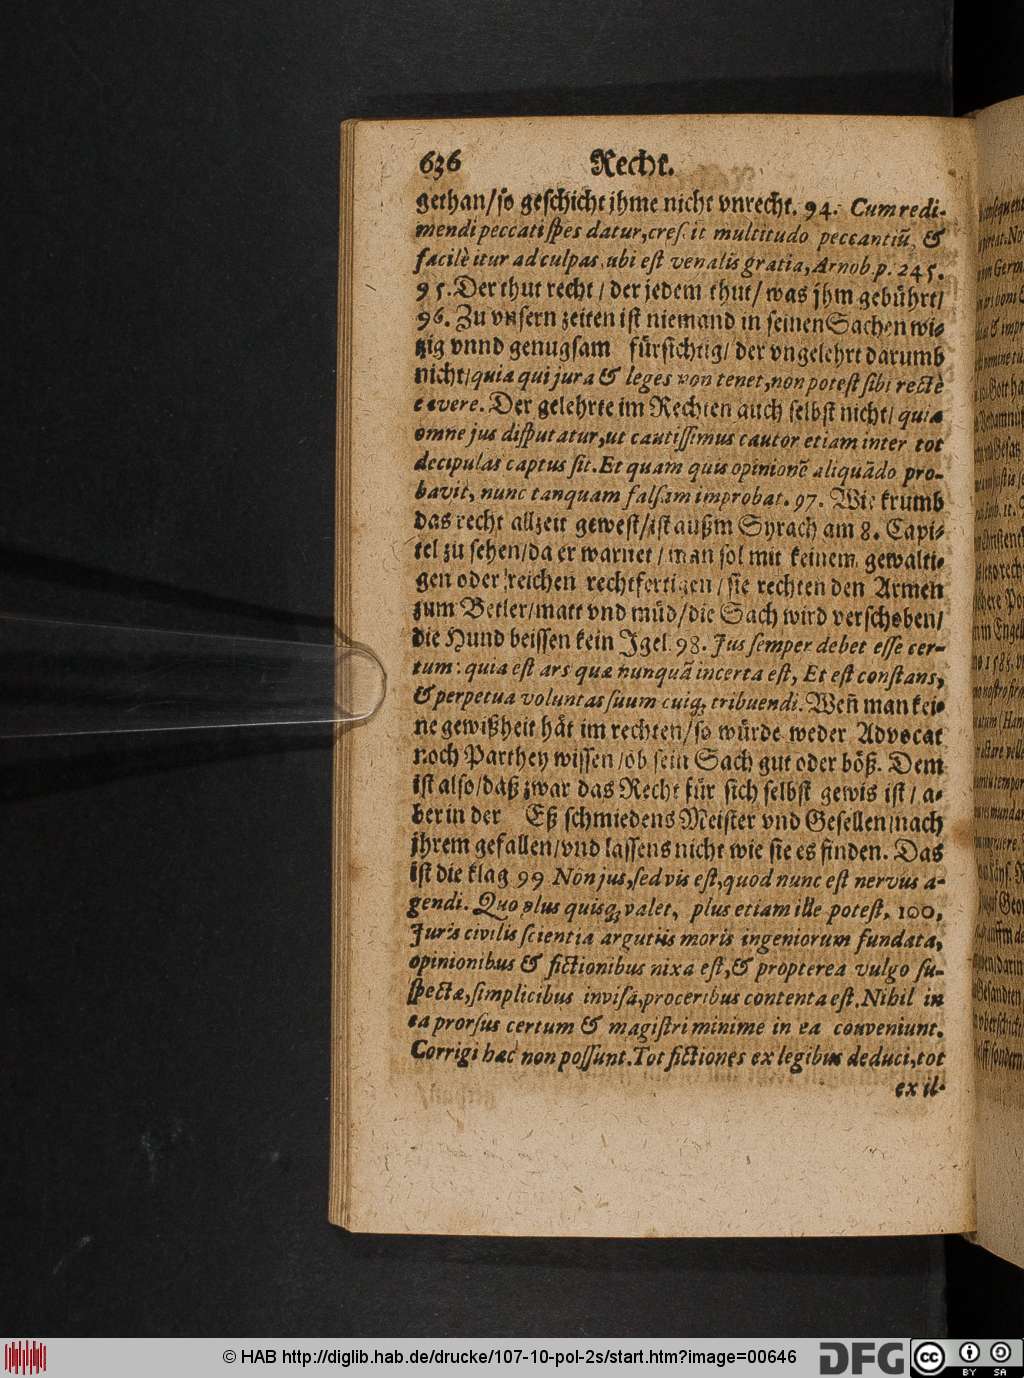 636 Recht.
gethan/so geschicht jhme nicht vnrecht. 94. Cum redi-
mendi peccati spes datur, crescit multitudo peccantiū, &
facilè itur ad culpas, ubi est venalis gratia, Arnob. p. 245.
95. Der thut recht/ der jedem thut/ was jhm gebührt/
96. Zu vnsern zeiten ist niemand in seinen Sachen wi-
tzig vnnd genugsam fürsichtig/ der vngelehrt darumb
nicht/ quia qui jura & leges non tenet, non potest sibi rectè
cavere. Der gelehrte im Rechten auch selbst nicht/ quia
omne jus disputatur, ut cautissimus cautor etiam inter tot
decipulas captus sit. Et quam quis opinionē aliquādo pro-
bavit, nunc tanquam falsam improbat. 97. Wie krumb
das recht allzeit gewest/ ist außm Syrach am 8. Capi-
tel zu sehen/ da er warnet/ man sol mit keinem gewalti-
gen oder reichen rechtfertigen/ sie rechten den Armen
zum Betler/ matt vnd müd/ die Sach wird verschoben/
die Hund beissen kein Igel. 98. Jus semper debet esse cer-
tum: quia est ars quæ nunquā incerta est, Et est constans,
& perpetua voluntas suum cuiq; tribuendi. Weñ man kei-
ne gewißheit hät im rechten/ so würde weder Advocat
noch Parthey wissen/ ob sein Sach gut oder böß. Dem
ist also/ daß zwar das Recht für sich selbst gewis ist/ a-
ber in der Eß schmiedens Meister vnd Gesellen/ nach
jhrem gefallen/ vnd lassens nicht wie sie es finden. Das
ist die klag 99 Non jus, sed vis est, quod nunc est nervus a-
gendi. Quo plus quisq; valet, plus etiam ille potest. 100,
Juris civilis scientia argutiis moris ingeniorum fundata,
opinionibus & fictionibus nixa est, & propterea vulgo su-
specta, simplicibus invisa, proceribus contenta est. Nihil in
ea prorsus certum & magistri minime in ea conveniunt.
Corrigi hac non possunt. Tot fictiones ex legibus deduci, tot
ex il-
© HAB http://diglib.hab.de/drucke/107-10-pol-2s/start.htm?image=00646
DFG
cc BY SA